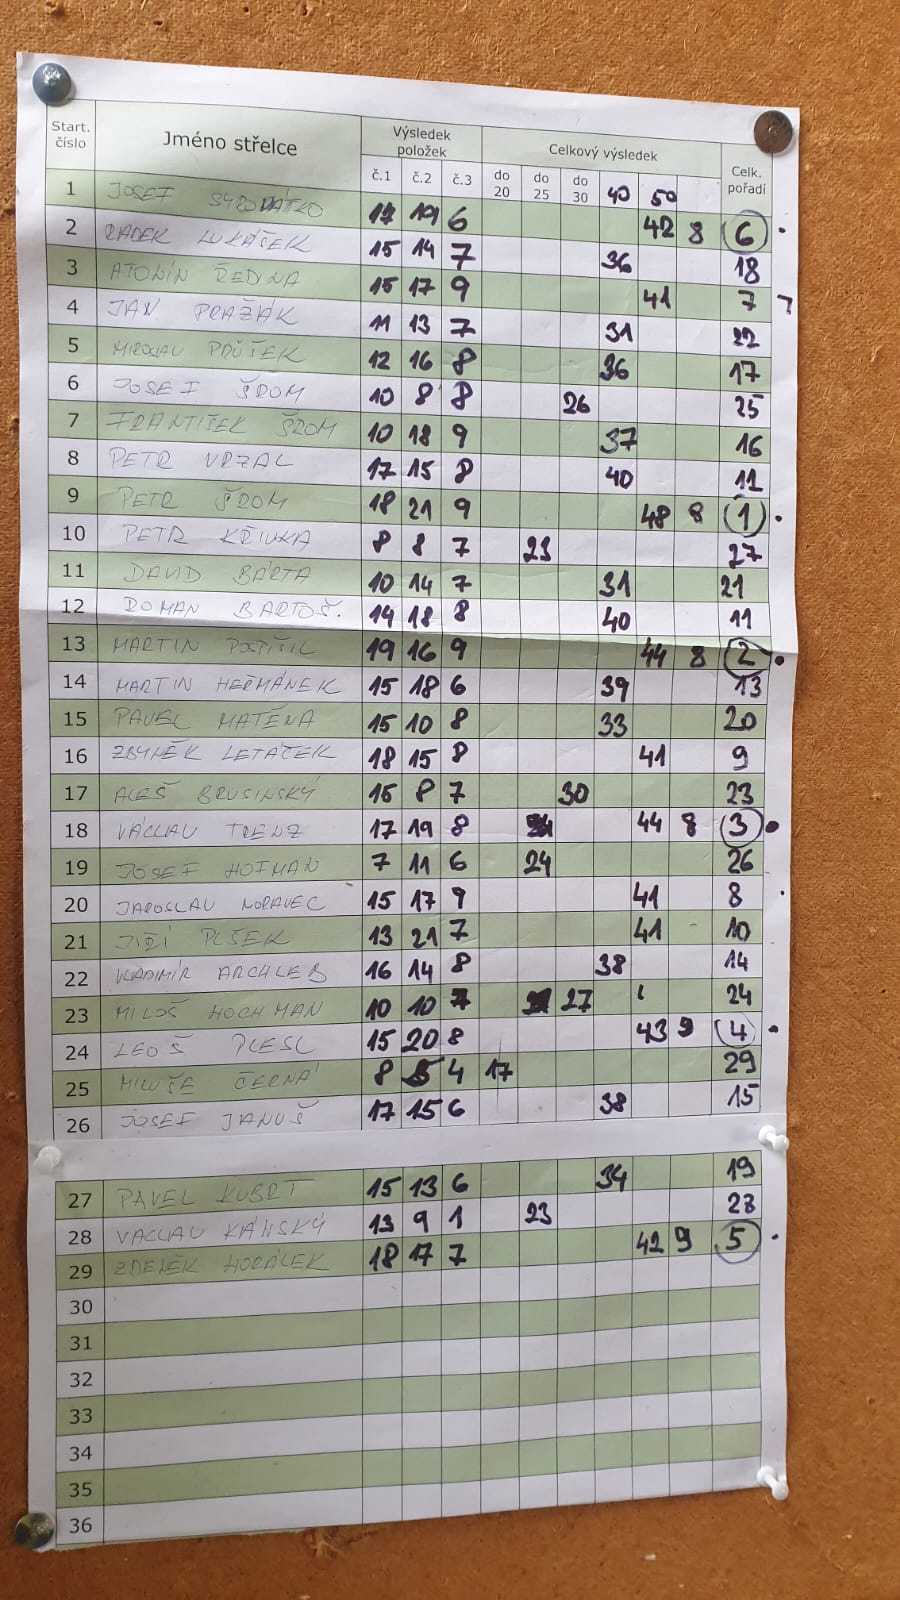 Start. číslo Jméno střelce Výsledek položek Celkový výsledek Celk. pořadí
č.1 č.2 č.3 do 20 do 25 do 30 40 50
1 JOSEF SYROVÁTKO 17 19 6 42 8 6
2 RADEK LUKÁŠEK 15 14 7 36 18
3 ATONÍN ŘEDINA 15 17 9 41 7 7
4 JAN PRAŽÁK 11 13 7 31 22
5 MIROSLAV PRŮŠEK 12 16 8 36 17
6 JOSEF ŠROM 10 8 8 26 25
7 FRANTIŠEK ŠROM 10 18 9 37 16
8 PETR VRZAL 17 15 8 40 11
9 PETR ŠROM 18 21 9 48 8 1
10 PETR KŘIVKA 8 8 7 23 27
11 DAVID BÁRTA 10 14 7 31 21
12 ROMAN BARTOŠ. 14 18 8 40 11
13 MARTIN POSPÍŠIL 19 16 9 44 8 2
14 MARTIN HEŘMÁNEK 15 18 6 39 13
15 PAVEL MATĚNA 15 10 8 33 20
16 ZBYNĚK LETÁČEK 18 15 8 41 9
17 ALEŠ BRUSINSKÝ 15 8 7 30 23
18 VÁCLAV TRENZ 17 19 8 44 8 3
19 JOSEF HOFMAN 7 11 6 24 26
20 JAROSLAV MORAVEC 15 17 9 41 8
21 JIŘÍ PLŠEK 13 21 7 41 10
22 VLADIMÍR ARCHLEB 16 14 8 38 14
23 MILOŠ HOCHMAN 10 10 7 27 24
24 LEOŠ PLESL 15 20 8 43 9 4
25 MILUŠE ČERNÁ 8 5 4 17 29
26 JOSEF JANUŠ 17 15 6 38 15
27 PAVEL KUBRT 15 13 6 34 19
28 VACLAV KÁNSKÝ 13 9 1 23 28
29 ZDENĚK HORÁLEK 18 17 7 42 9 5
30
31
32
33
34
35
36